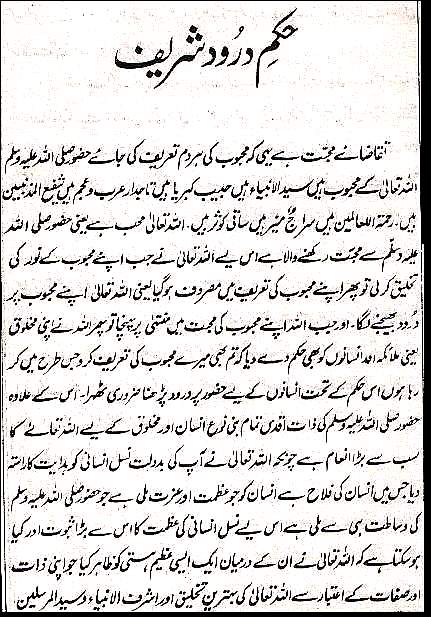 حکمِ درُود شریف
تقاضائے محبّت ہے یہی کہ محبوب کی ہر دم تعریف کی جائے حضور صلی اللہ علیہ وسلم
اللہ تعالیٰ کے محبوب ہیں سید الانبیاء ہیں حبیب کبریا ہیں تاجدار عرب و عجم ہیں شفیع المذنبین
ہیں۔ رحمۃ اللعالمین ہیں سراجٌ منیر ہیں ساقی کوثر ہیں۔ اللہ تعالیٰ محب ہے یعنی حضور صلی اللہ
علیہ وسلم سے محبت رکھنے والا ہے اس لیے اللہ تعالیٰ نے جب اپنے محبوب کے نور کی
تخلیق کر لی تو پھر اپنے محبوب کی تعریف میں مصروف ہو گیا یعنی اللہ تعالیٰ اپنے محبوب پر
درُود بھیجنے لگا۔ اور جب اللہ اپنے محبوب کی محبت میں منتہیٰ پر پہنچا تو پھر اللہ نے اپنی مخلوق
یعنی ملائکہ اور انسانوں کو بھی حکم دے دیا کہ تم بھی میرے محبوب کی تعریف کرو جس طرح میں کر
رہا ہوں اس حکم کے تحت انسانوں کے لیے حضور پر درود پڑھنا ضروری ٹھہرا۔ اُس کے علاوہ
حضور صلی اللہ علیہ وسلم کی ذات اقدس تمام بنی نوع انسان اور مخلوق کے لیے اللہ تعالےٰ کا
سب سے بڑا انعام ہے چونکہ اللہ تعالیٰ نے آپ کی بدولت نسل انسانی کو ہدایت کا راستہ
دیا جس میں انسان کی فلاح ہے انسان کو جو عظمت اور عزت ملی ہے جو حضور صلی اللہ علیہ وسلم
کی وساطت ہی سے ملی ہے اس لیے نسل انسانی کی عظمت کا اس سے بڑا ثبوت اور کیا
ہو سکتا ہے کہ اللہ تعالیٰ نے ان کے درمیان ایک ایسی عظیم ہستی کو ظاہر کیا جو اپنی ذات
اور صفات کے اعتبار سے اللہ تعالیٰ کی بہترین تخلیق اور اشرف الانبیاء و سید المرسلین